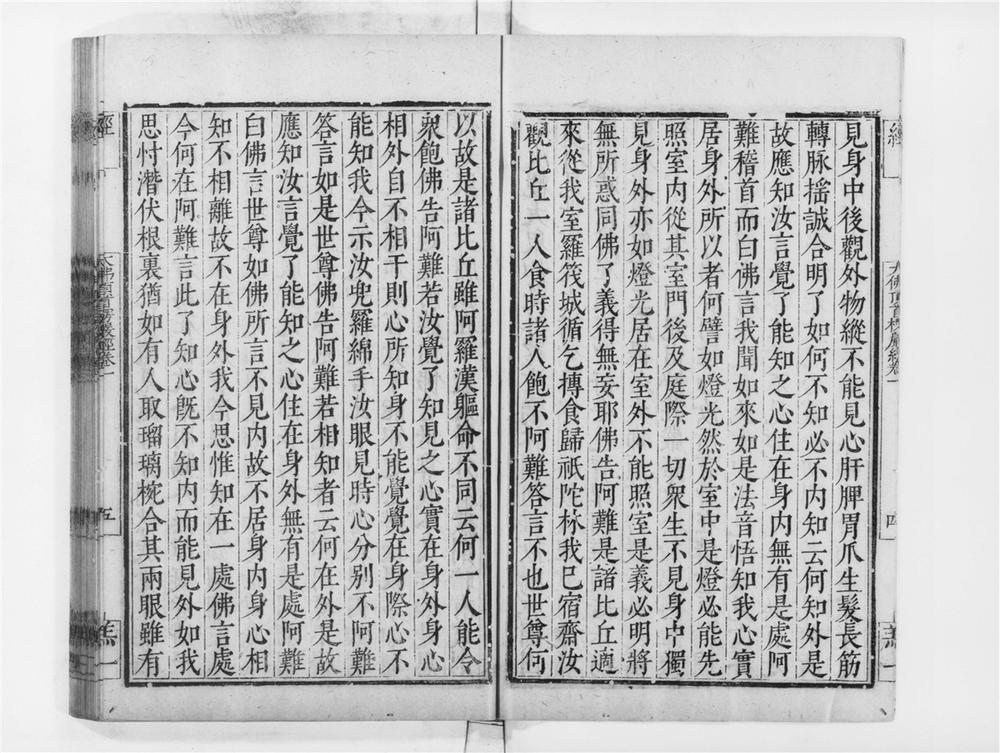 經
大佛頂首楞嚴經卷一
四
羔一
見身中後觀外物縱不能見心肝脾胃爪生髮長筋
轉脉揺誠合明了如何不知必不内知云何知外是
故應知汝言覺了能知之心住在身内無有是處阿
難稽首而白佛言我聞如來如是法音悟知我心實
居身外所以者何譬如燈光然於室中是燈必能先
照室内從其室門後及庭際一切衆生不見身中獨
見身外亦如燈光居在室外不能照室是義必明將
無所惑同佛了義得無妄耶佛告阿難是諸比丘適
來從我室羅筏城循乞摶食歸祇陀林我已宿齋汝
觀比丘一人食時諸人飽不阿難答言不也世尊何
以故是諸比丘雖阿羅漢軀命不同云何一人能令
衆飽佛告阿難若汝覺了知見之心實在身外身心
相外自不相干則心所知身不能覺覺在身際心不
能知我今示汝兜羅綿手汝眼見時心分别不阿難
答言如是世尊佛告阿難若相知者云何在外是故
應知汝言覺了能知之心住在身外無有是處阿難
白佛言世尊如佛所言不見内故不居身内身心相
知不相離故不在身外我今思惟知在一處佛言處
今何在阿難言此了知心既不知内而能見外如我
思忖潛伏根裏猶如有人取瑠璃椀合其兩眼雖有
經
大佛頂首楞嚴經卷一
五
羔一